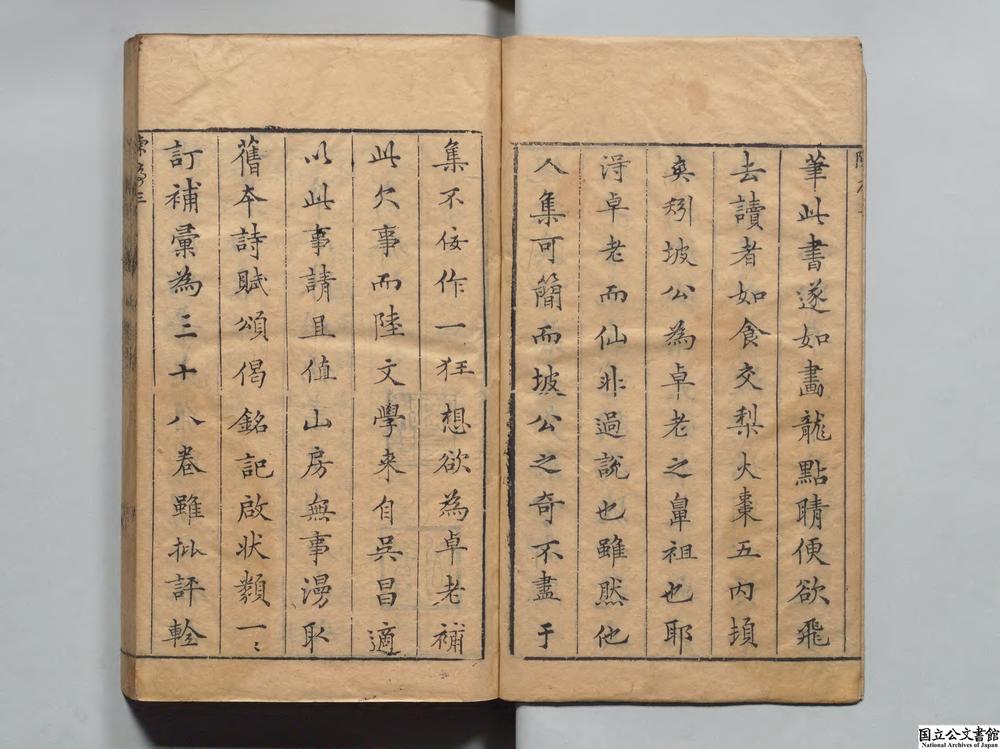 筆此書遂如畵龍點睛便欲飛
去讀者如食交梨火棗五内頃
爽矧坡公為卓老之鼻祖也耶
淂卓老而仙非過說也雖然他
人集可簡而坡公之奇不盡于
集不佞作一狂想欲為卓老補
此欠事而陸文學來自吳昌適
以此事請且值山房無事漫取
舊本詩賦頌偈銘記啟狀類一〻
訂補彙為三十八卷雖批評輇
陳序三
国立公文書館
National Archives of Japan